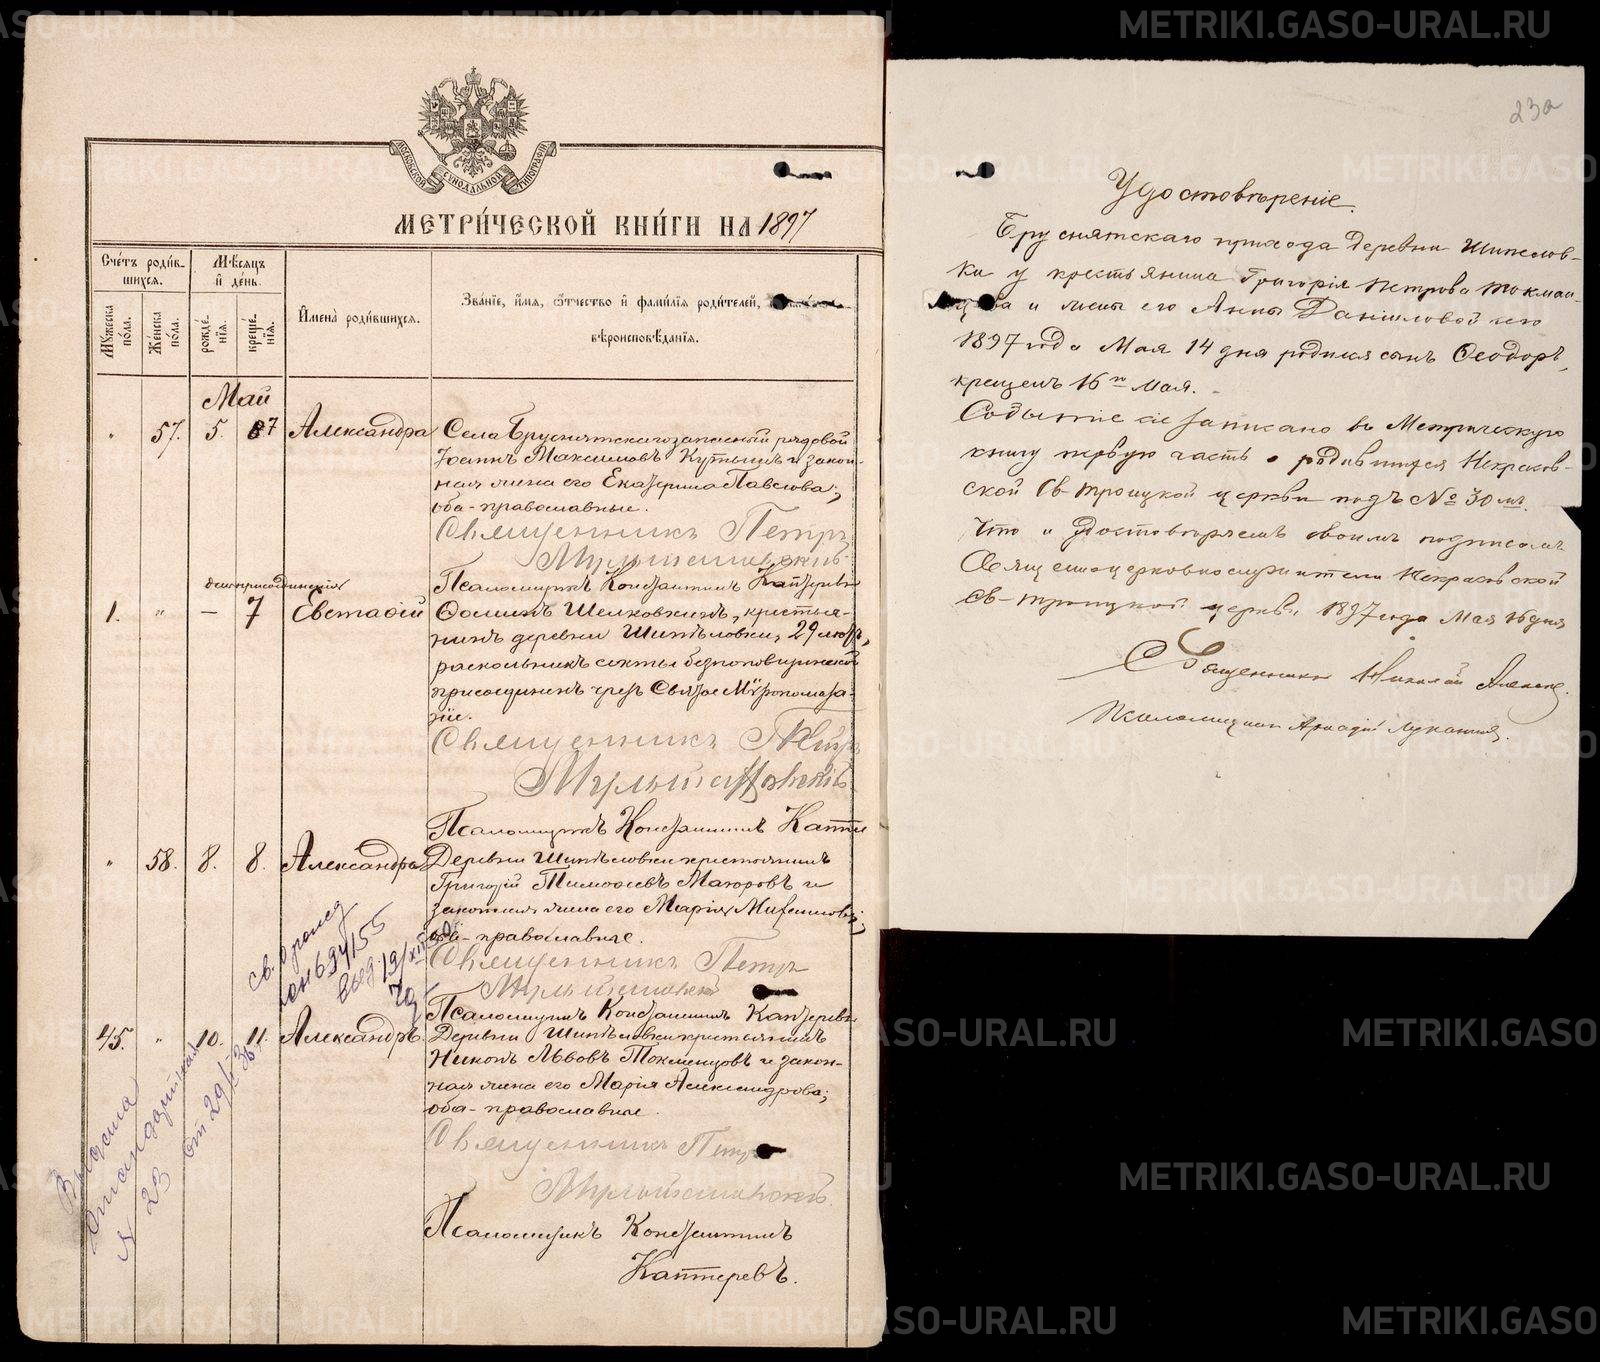 METRIKI.GASO-URAL.RU
МОСКОВСКОЙ СѴНОДАЛЬНОЙ ТИПОГРАФІИ
МЕТРИ́ЧЕСКОЙ КНИ́ГИ НА 1897
Сче́тъ роди́в-
шихся.
Мѣ́сяцъ
и҆ де́нь.
Мꙋ́жеска
по́ла.
Же́нска
по́ла.
рожде́-
нїѧ.
креще́-
нїѧ.
И҆мена̀ роди́вшихся.
Зва́нїе, и҆́мѧ, ѻ҆́тчество и҆ фами́лїѧ роди́телей,
вѣ̑роисповѣ́данїѧ.
Май
" 57. 5. 7 Александра Села Бруснятскаго запасный рядовой
Іоаннъ Максимовъ и закон-
ная жена его Екатерина Павлова;
оба православные.
Священникъ Петръ
Псаломщикъ Константинъ Каптеревъ
день присоединенія
1. " — 7 Евстафій Ѳоминъ Шелковкинъ, крестья-
нинъ деревни Шипѣловки, 29 лѣтъ,
раскольникъ секты безпоповщинской
присоединенъ чрезъ Святое Мѵропомаза-
ніе.
Священникъ Петръ
Псаломщикъ Константинъ Капте
" 58. 8. 8. Александра Деревни Шипѣловки крестьянинъ
Григорій Тимоѳеевъ Махоровъ и
законная жена его Марія
оба православные.
Священникъ Петръ
Псаломщикъ Константинъ Каптеревъ
45. " 10. 11. Александръ. Деревни Шипѣловки крестьянинъ
Никонъ Львовъ Токманцовъ и закон-
ная жена его Марія Александрова;
оба православные.
Священникъ Петръ
Псаломщикъ Константинъ
Каптеревъ.
694155
19/XII
Выдана
№ 23 от 29/I 36
23а
Удостовѣреніе.
Бруснятскаго прихода деревни Шипелов-
ки у крестьянина Григорія Петрова Токман-
цова и жены его Анны Даниловой сего
1897 года Мая 14 дня родился сынъ Ѳеодоръ,
крещенъ 16го Мая.
Событіе сіе записано въ Метрическую
книгу первую часть о родившихся Некрасов-
ской Св-Троицкой церкви подъ № 30 мъ.
Что и удостовѣряемъ своимъ подписомъ
Священноцерковнослужители Некрасовской
Св-Троицкой церкви. 1897 года Мая 16 дня
Священникъ Николай
Псаломщикъ Аркадій Луканинъ.